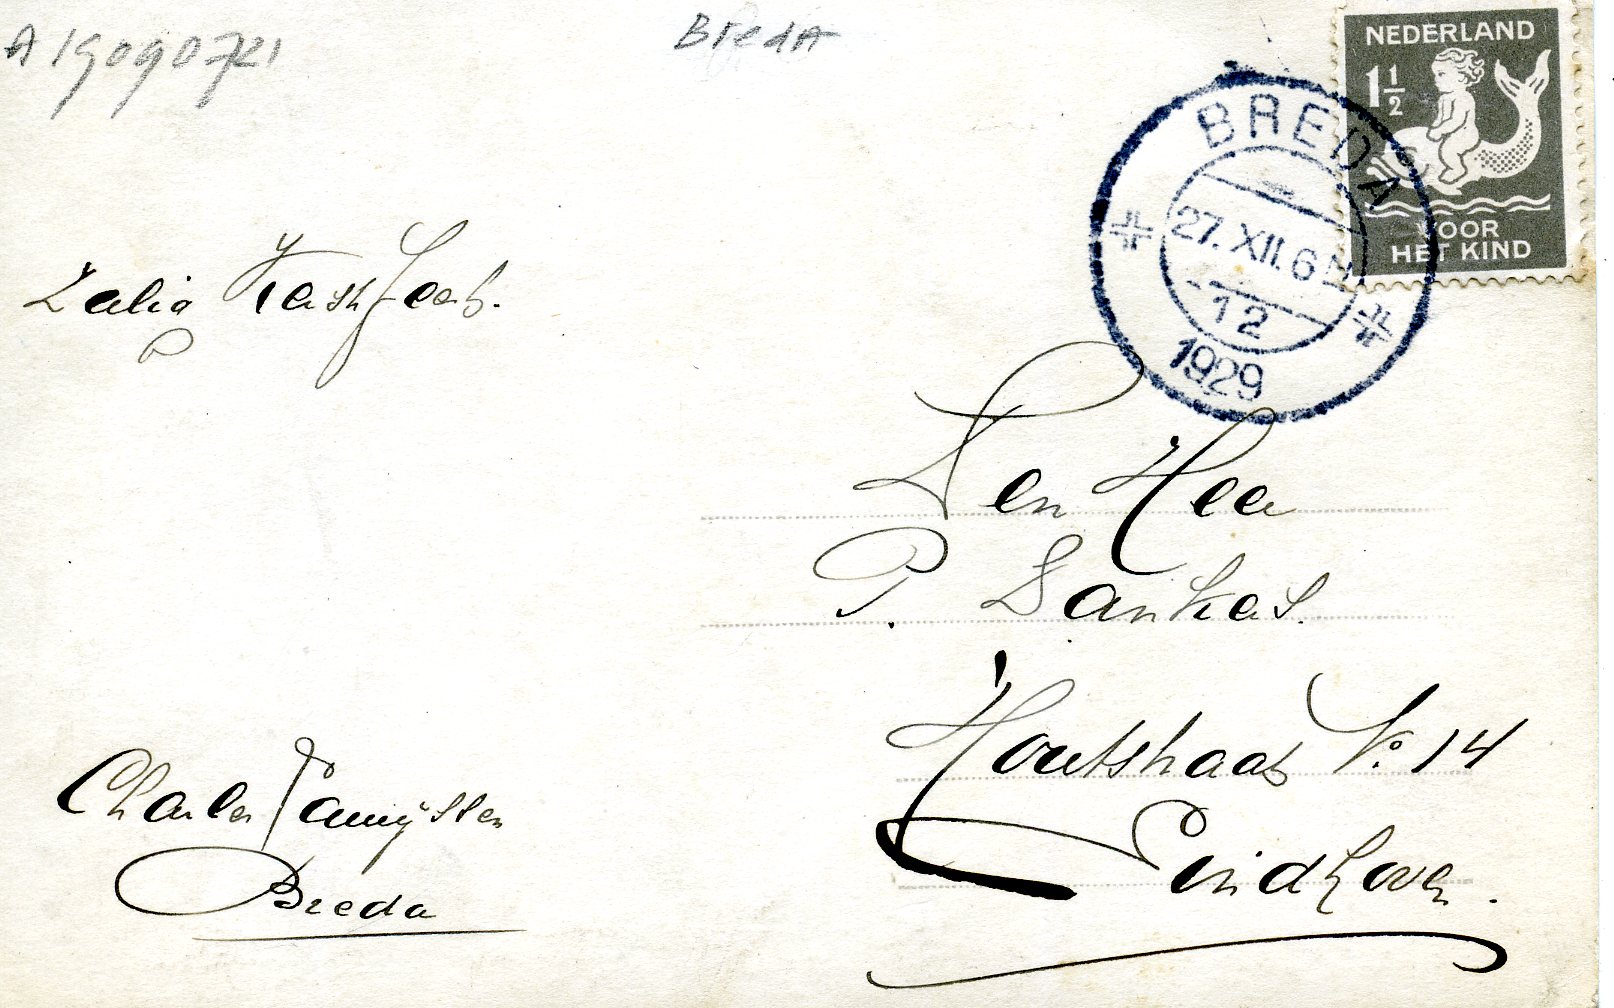 A19090721
BredA
NEDERLAND
1 1/2
VOOR
HET KIND
BREDA
27.XII.6 N
12
1929
Zalig Kerstfeest.
Den Heer
P. Dankes.
Houtstraat No. 14
Eindhoven.
Charles
Breda